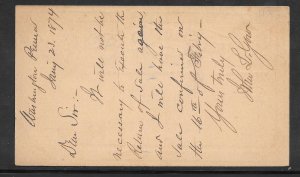 Washington Penna
Jany 23. 1874
Dear Sir:
It will not be
necessary to execute the
Return of Sale again
and I will have the
Sale confirmed on
the 16th of Feby.
Yours truly